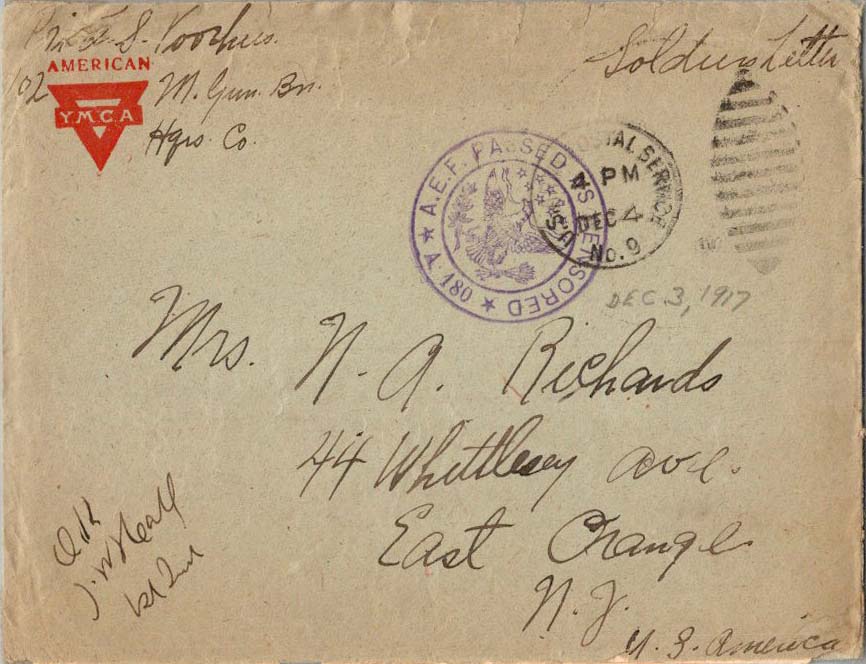 Pri. F. S. Voorhees.
Soldiers Letter
AMERICAN
102 M. Gun. Bn.
Y.M.C.A
Hqrs. Co.
A.E.F. PASSED AS CENSORED
★ A 180 ★
POSTAL SERVICE
PM
DEC 4
U.S.
No. 9
DEC. 3, 1917
Mrs. N. A. Richards
44 Whittlesey ave.
East Orange
N. J.
U. S. America
OK